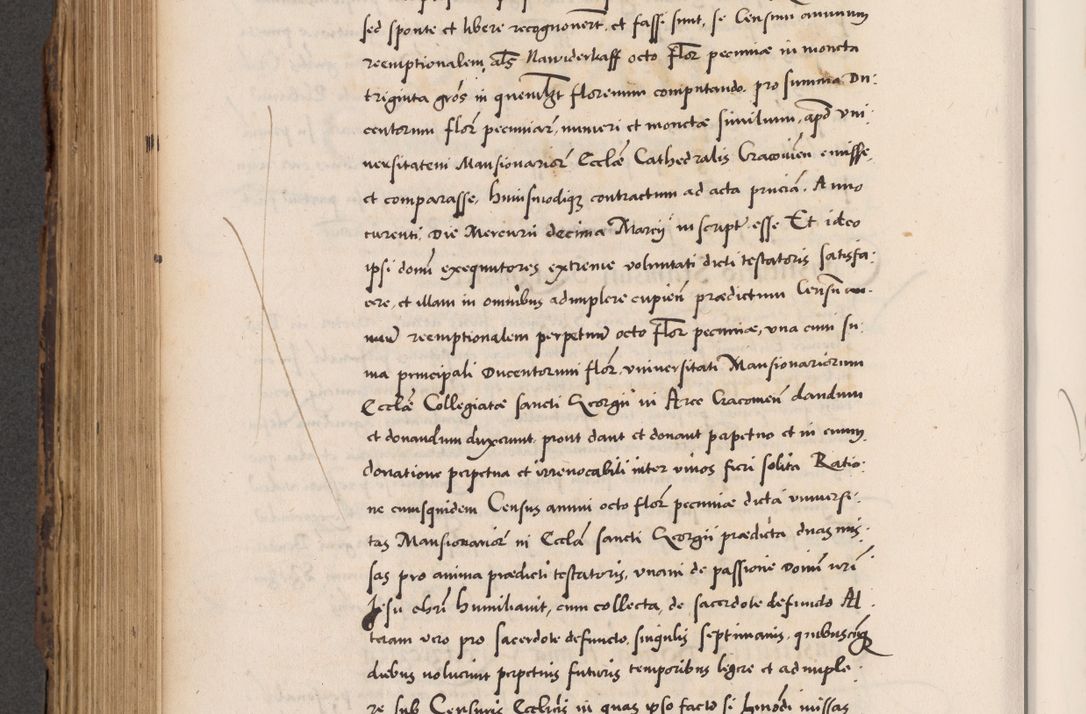 sed sponte et libere recognouerūt, et fassi sunt, se Censum annuum
reemptionalem, als Nawiderkaff octo Flor pecuniæ in moneta
triginta gros in quemlibt florenum computando, pro summa Du:
centorum flor pecuniar, numeri et monetæ similium, apd vni:
uersitatem Mansionarior Ecclæ Cathedralis Cracouien emisse,
et comparasse, huiusmodiqȝ contractum ad acta pnciā. Anno
curenti. Die Mercurii decima Marcij in script esse Et ideo
ipsi domi exequutores extreme voluntati dicti testatoris satisfa:
cere, et illam in omnibus adimplere cupien prædictum Censū an:
nuū reemptionalem perpetuū octo Flor pecuniæ, vna cum su:
ma principali Ducentorum flor, vniuersitati Mansionariorum
Ecclæ Collegiatæ sancti Georgii in Arce Cracouien dandum
et donandum duxerunt, prout dant et donant perpetuo et in eum
donatione perpetua et irreuocabili inter viuos fieri solita Ratio:
ne cuiusquidem Census annui octo flor pecuniæ dicta vniuersi:
tas Mansionarior in Ecclā sancti Georgii prædicta duas mis:
sas pro anima prædicti testatoris, vnam de passione Domi nri
Jesu chri humiliauit, cum collecta, de sacerdote defuncto Al:
teram vero pro sacerdote defuncto, singulis septimanis, quibuscūqȝ
diebus voluerint perpetuis futuris temporibus legere et adimple:
re sub Censuris Ecclīcis in quas ipso facto si hmōdi missas